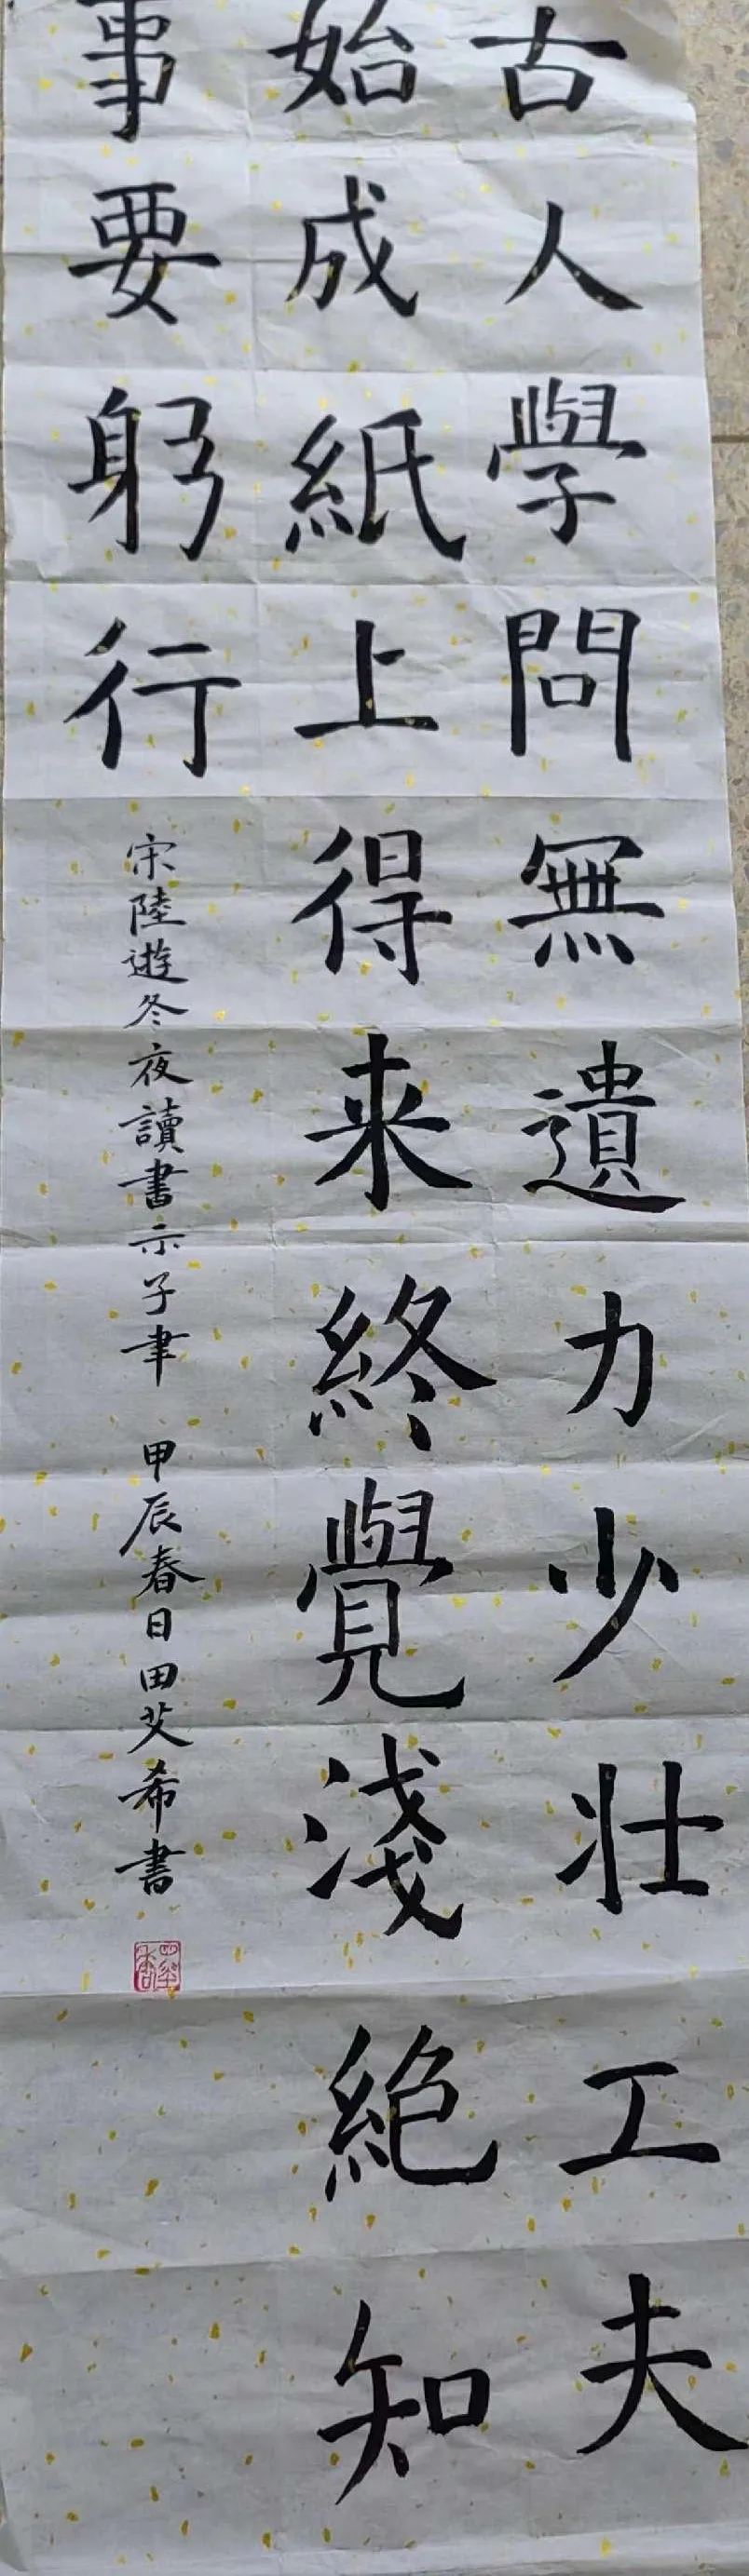 古人學問無遺力少壮工夫
始成紙上得来終覺淺絕知
事要躬行
宋陸遊冬夜讀書示子聿 甲辰春日田艾希書